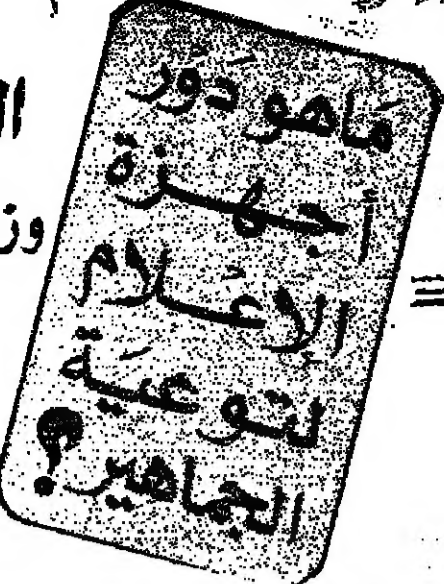 مَا هو دَور
أجهزة
الإعلام
لتوعية
الجماهير؟